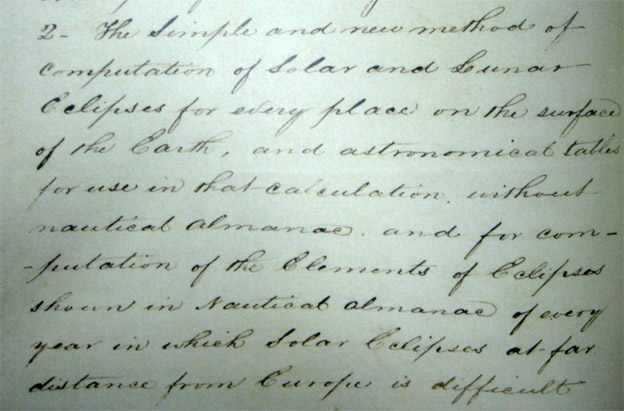 2- The Simple and new method of
computation of Solar and Lunar
Eclipses for every place on the surface
of the Earth, and astronomical tables
for use in that calculation, without
nautical almanac. and for com-
-putation of the Elements of Eclipses
shown in Nautical almanac of every
year in which Solar Eclipses at far
distance from Europe is difficult